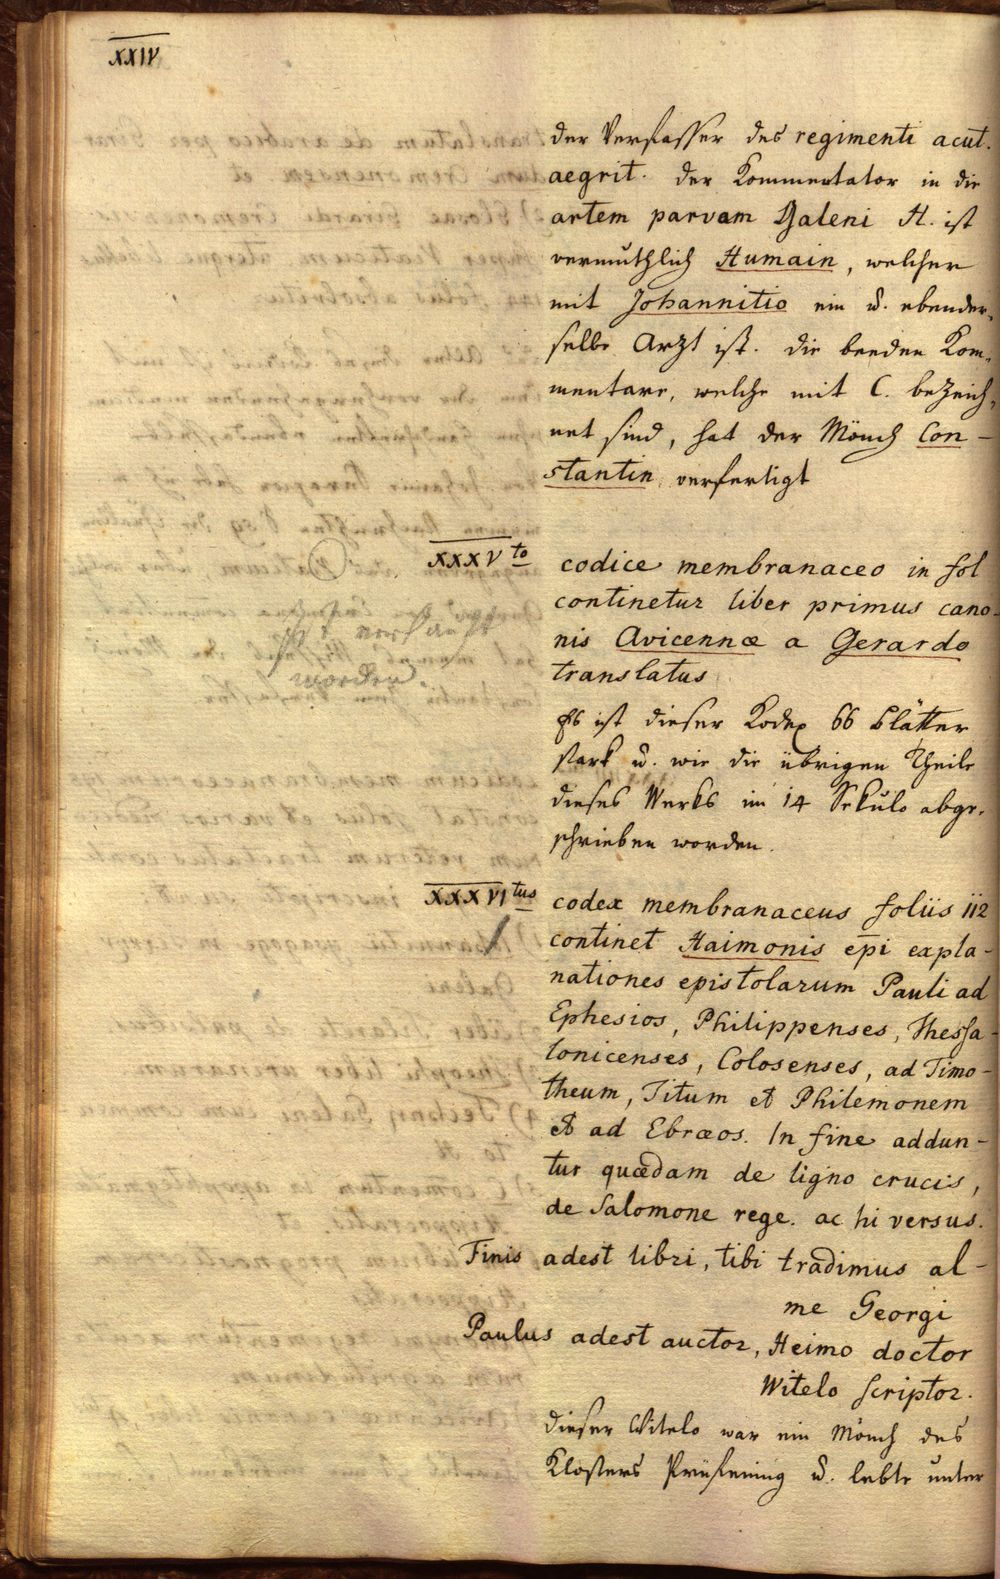 XXIV
der Verfasser des regimenti acut.
aegrit. der Kommentator in die
artem parvam Galeni H. ist
vermuthlich Humain, welcher
mit Johannitio ein u. ebender-
selbe Arzt ist. die beeden Kom-
mentare, welche mit C. bezeich-
net sind, hat der Mönch Con-
stantin verfertigt
XXXVto codice membranaceo in fol
continetur liber primus cano-
nis Avicennæ a Gerardo
translatus
ist verkauft
worden.
Es ist dieser Kodex 66 Blätter
stark u. wie die übrigen Theile
dieses Werks im 14 Sekulo abge-
schrieben worden.
XXXVItus codex membranaceus foliis 112
continet Haimonis epi expla-
nationes epistolarum Pauli ad
Ephesios, Philippenses, Thessa-
lonicenses, Colosenses, ad Timo-
theum, Titum et Philemonem
et ad Ebræos. In fine addun-
tur quædam de ligno crucis,
de Salomone rege. ac hi versus.
Finis adest libri, tibi tradimus al-
me Georgi
Paulus adest auctor, Heimo doctor
Witelo scriptor.
dieser Witelo war ein Mönch des
Klosters Prüfening u. lebte unter